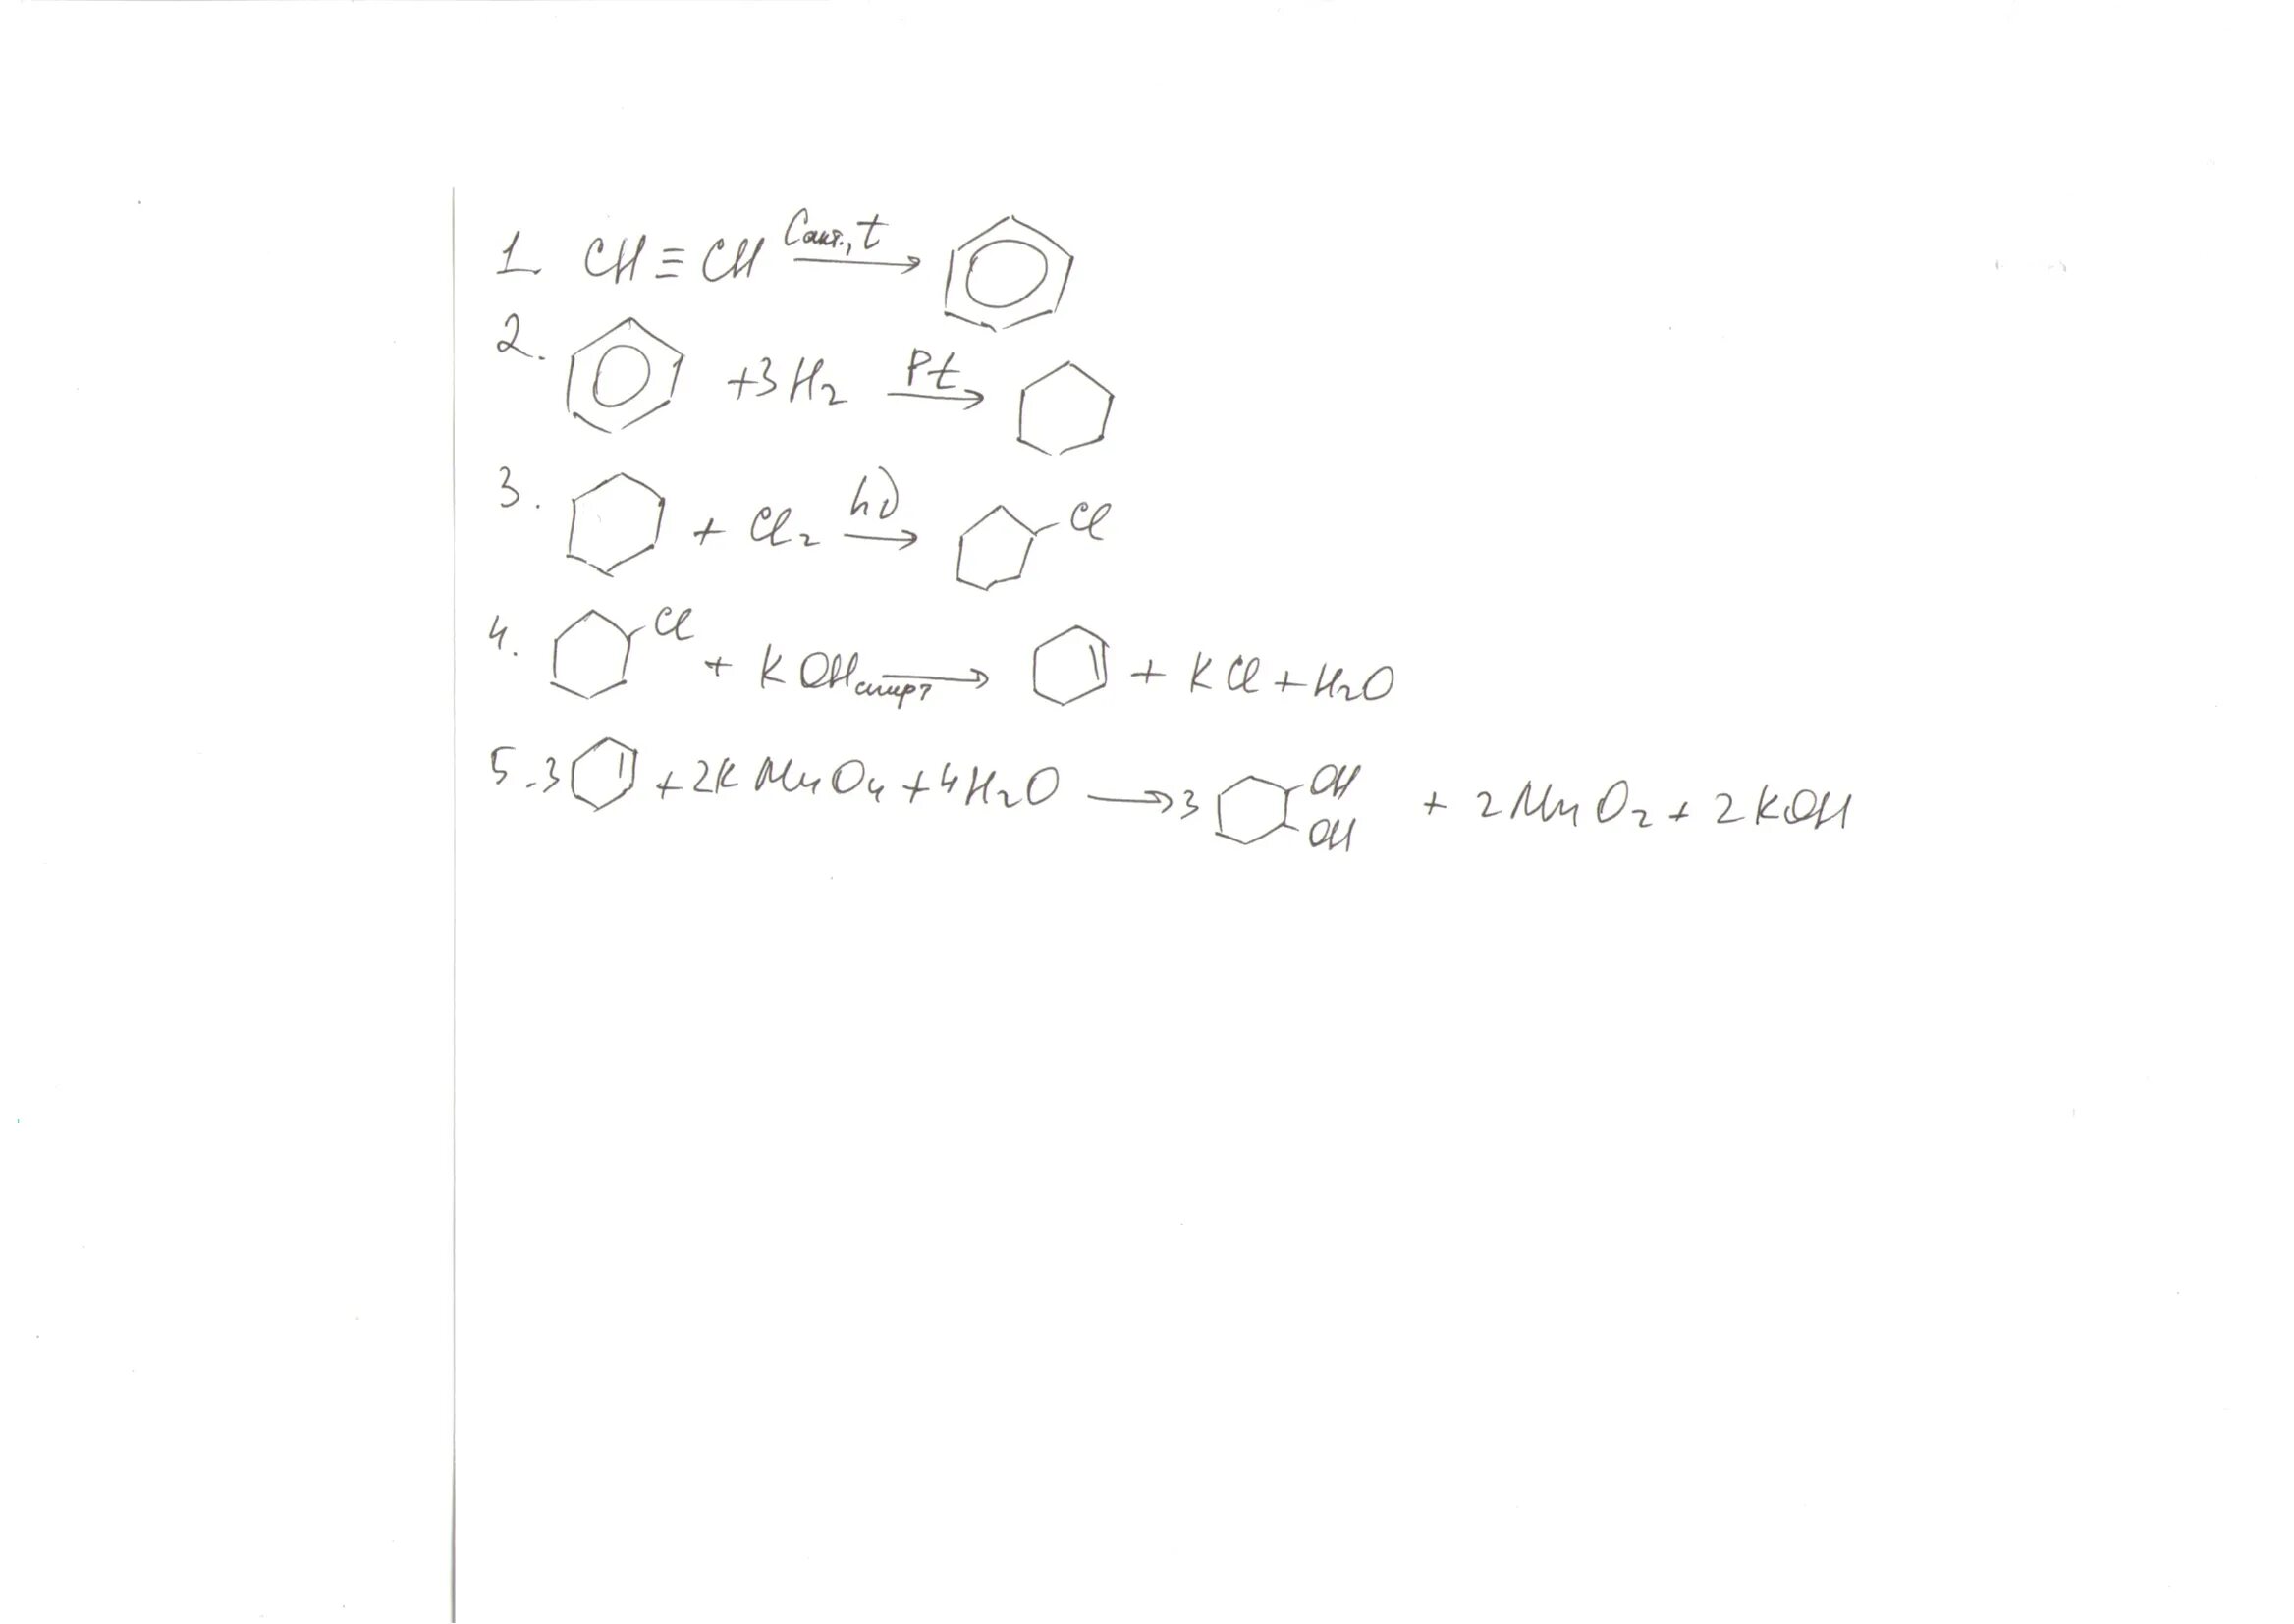 1. CH ≡ CH Cакт., t →
2. +3H₂ Pt →
3. + Cl₂ hν → Cl
4. Cl + KOH спирт → + KCl + H₂O
5. 3 + 2KMnO₄ + 4H₂O → 3 OH OH + 2MnO₂ + 2KOH